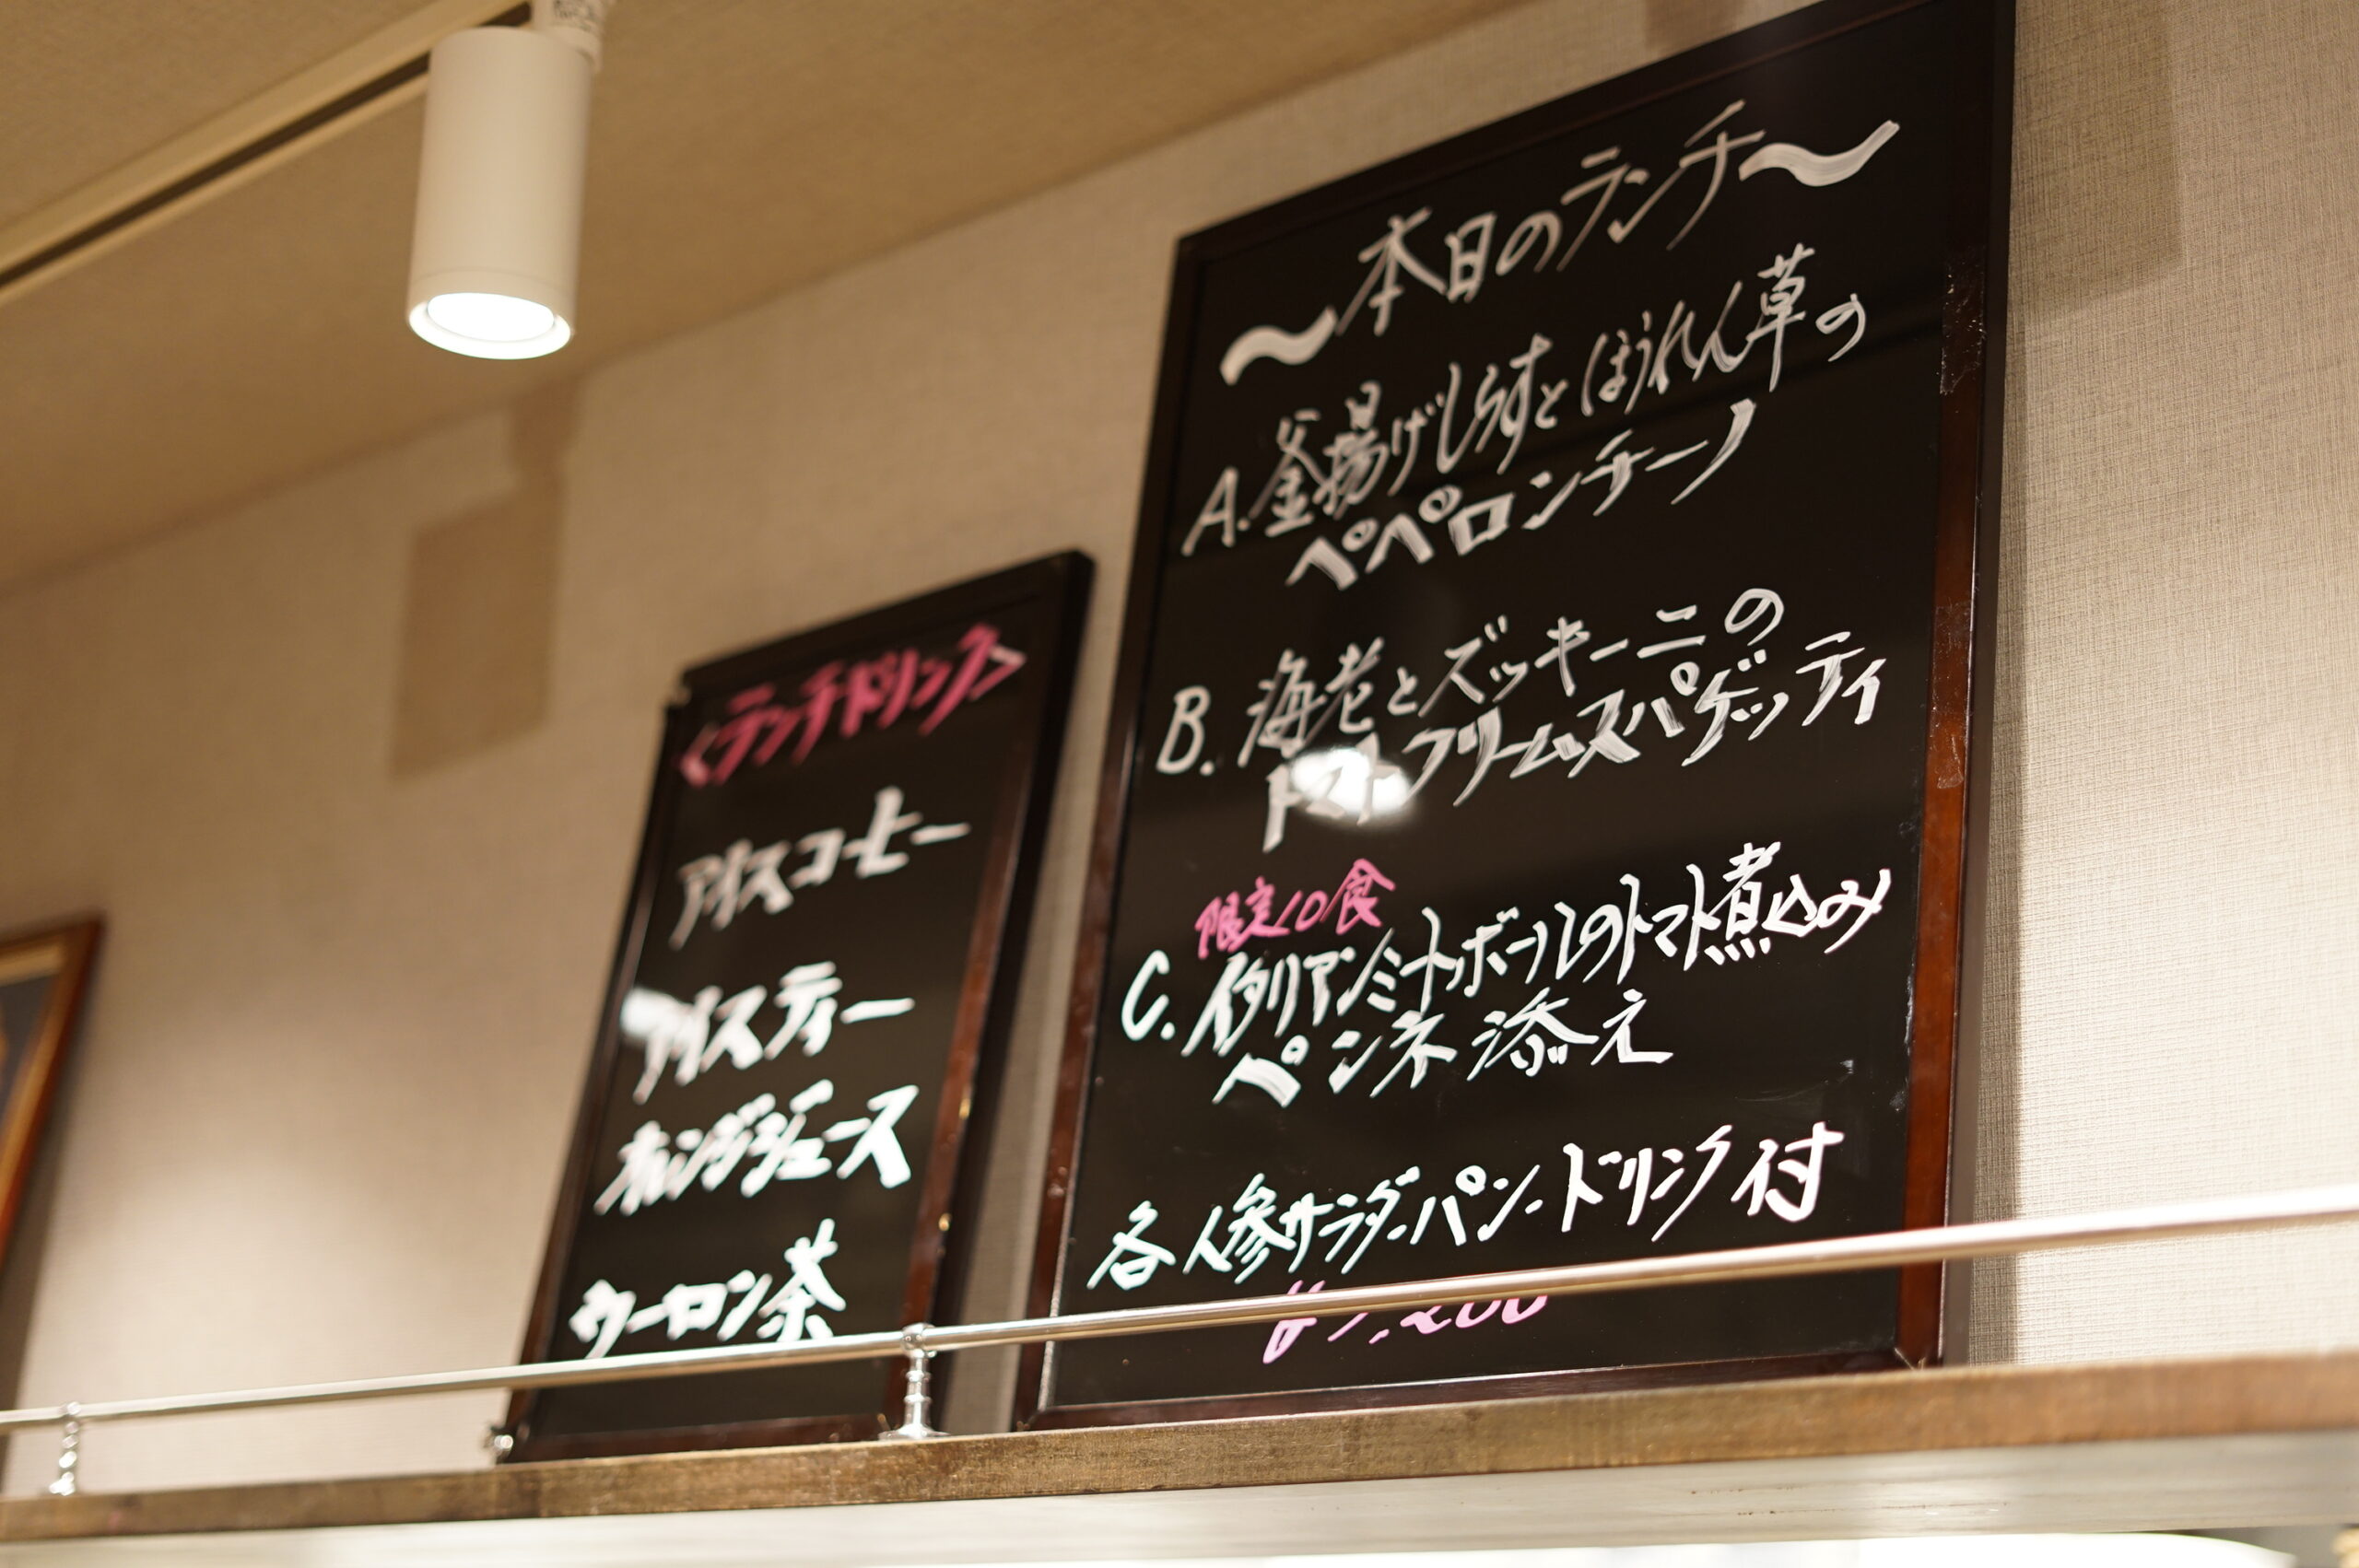 <ランチドリンク>
アイスコーヒー
アイスティー
オレンジジュース
ウーロン茶
〜本日のランチ〜
A.釜揚げしらすとほうれん草の
ペペロンチーノ
B.海老とズッキーニの
トマトクリームスパゲッティ
限定10食
C.イタリアンミートボールのトマト煮込み
ペンネ添え
各人参サラダ・パン・ドリンク付
¥1,200